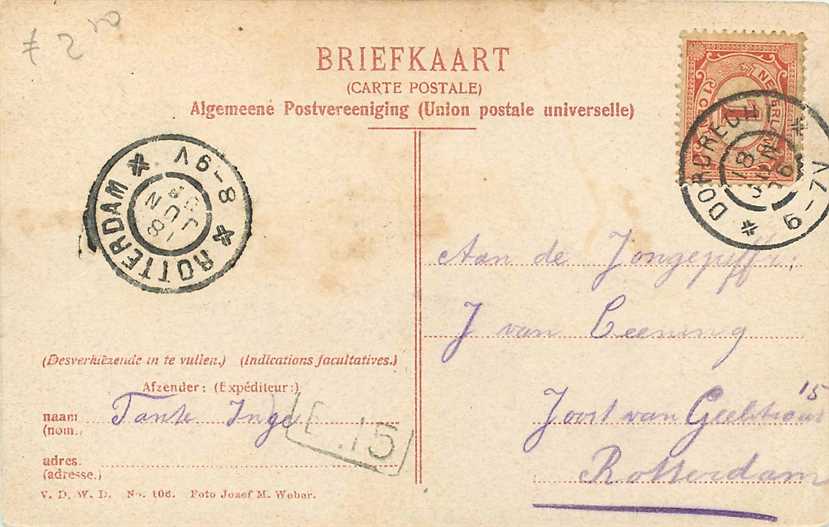 f 2 50
BRIEFKAART
(CARTE POSTALE)
Algemeene Postvereeniging (Union postale universelle)
DORDRECHT
6-7V
ROTTERDAM
8-9V
18
JUN
Aan de
J van
15
Joost van
Rotterdam
(Desverkiezende in te vullen.) (Indications facultatives.)
Afzender: (Expéditeur:)
naam Tante Inge
(nom.)
E. 15
adres.
(adresse.)
V. D. W. D. No. 106. Foto Jozef M. Weber.